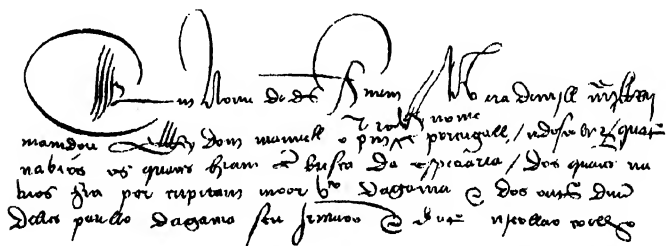 Em Nome de ds Amem Na era de mill iiij
nome
mandou Rey dom manuell o portugall / a descobrir quatro
nabios os quaes hiam em busca da especiaria / dos quaes na
bios hia por capitam moor Vco dagama e dos outros duũ
delles paullo dagama seu Jrmaoo e nicollao coelho